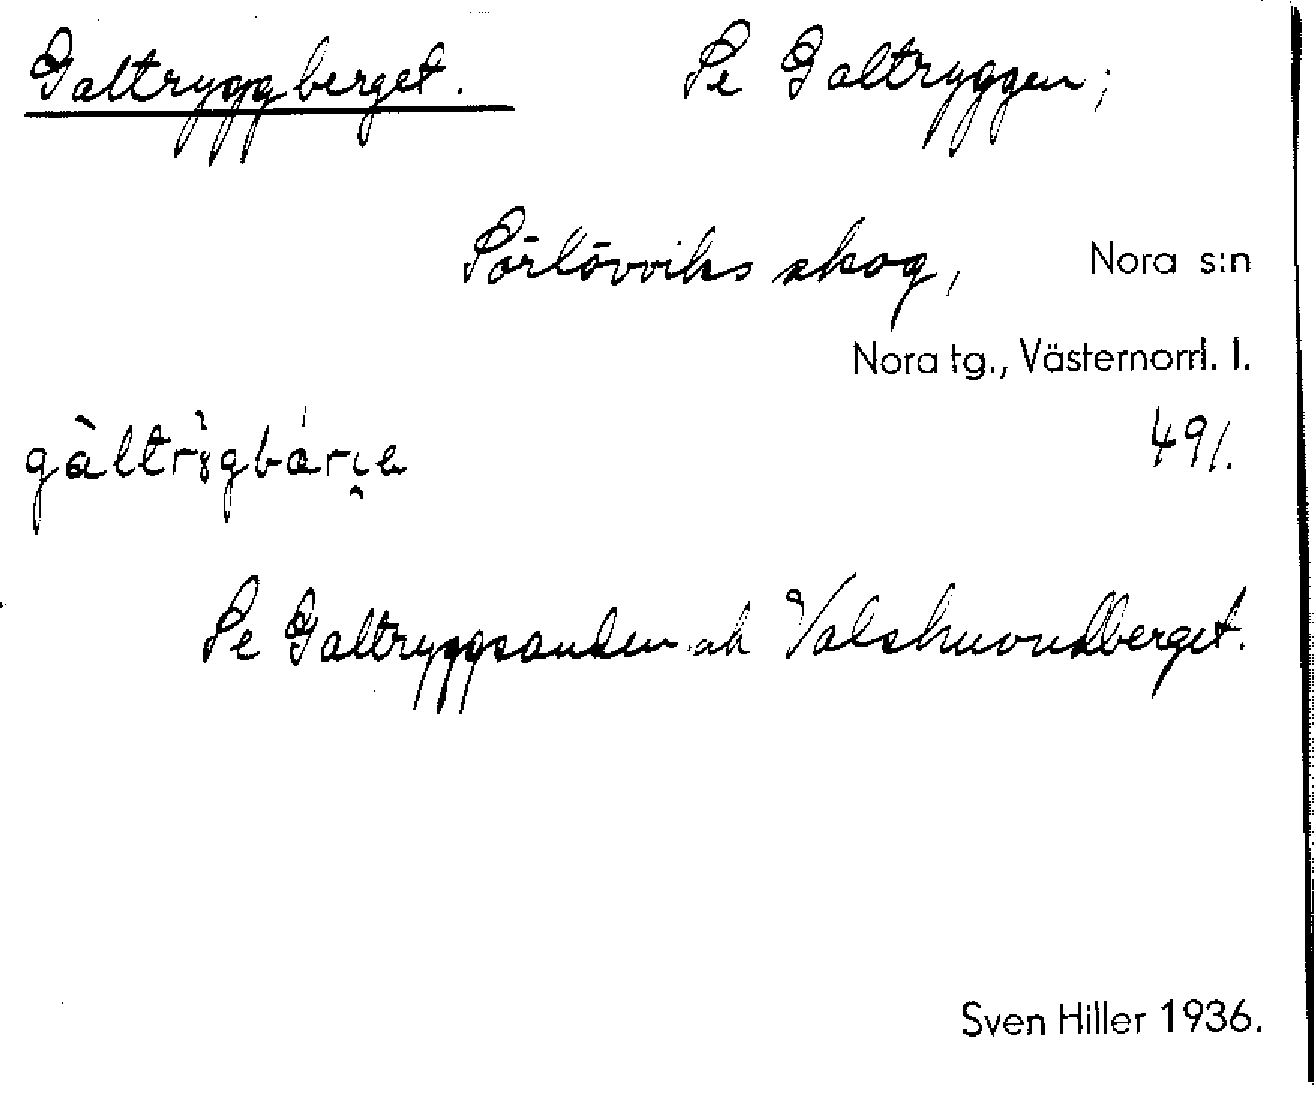 Galtryggberget. Se Galtryggen;
Sörlövviks skog, Nora s:n
Nora tg., Västernorrl. l.
49/.
Se Galtryggsanden och
Sven Hiller 1936.